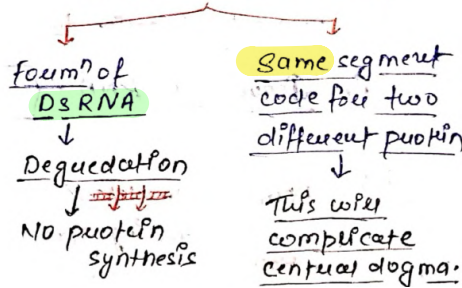 Formⁿ of
DsRNA
↓
Degredation
↓
No protein
synthesis
Same segment
code for two
different protein
↓
This will
complicate
central dogma.